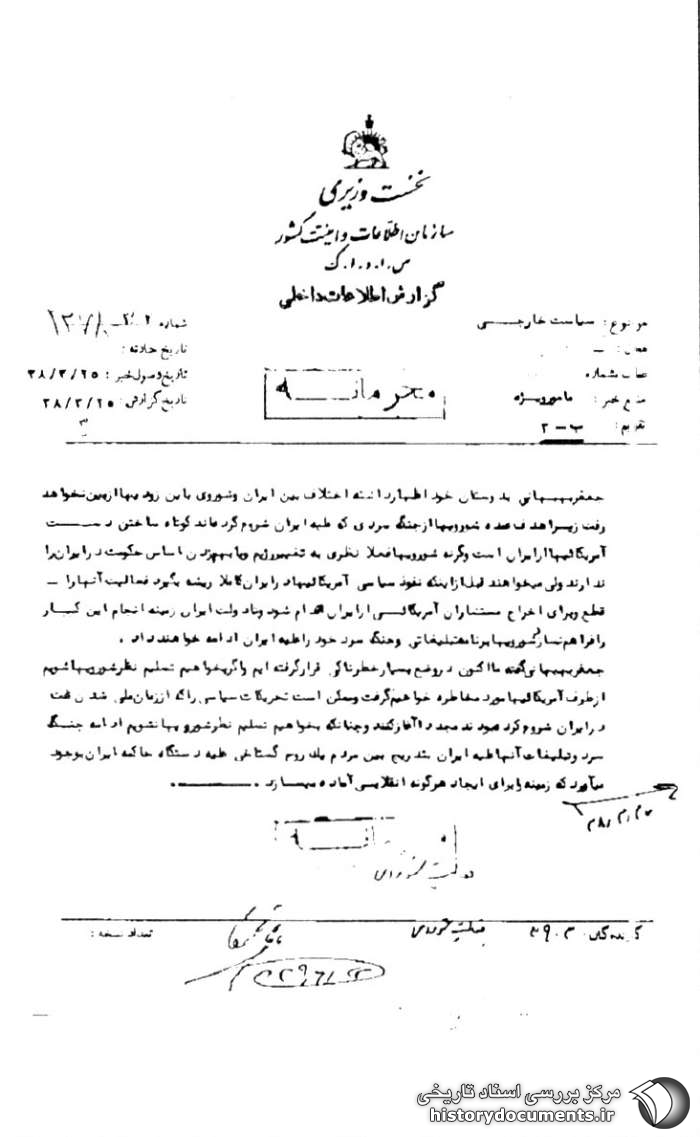 نخست وزیری
سازمان اطلاعات و امنیت کشور
س.ا.و.ا.ک
گزارش اطلاعات داخلی
موضوع: سیاست خارجی
شماره
تاریخ حادثه:
تاریخ وصول خبر: ۳۸/۳/۲۵
منبع خبر: مامور ویژه
تاریخ گزارش: ۳۸/۳/۲۵
تقویم: ب-۲
محرمانه
جعفر بهبهانی به دوستان خود اظهار داشته اختلاف بین ایران و شوروی باین زودیها از بین نخواهد
رفت زیرا هدف عمده شورویها از جنگ سردی که علیه ایران شروع کرده‌اند کوتاه ساختن دست
آمریکائیها از ایران است وگرنه شورویها فعلا نظری به تغییر رژیم و یا بهم زدن اساس حکومت در ایران را
ندارند ولی میخواهند قبل از اینکه نفوذ سیاسی آمریکائیها در ایران کاملا ریشه بگیرد فعالیت آنها را -
قطع و برای اخراج مستشاران آمریکائی از ایران اقدام شود و تا دولت ایران زمینه انجام این کار
را فراهم نسازد شورویها برنامه تبلیغاتی و جنگ سرد خود را علیه ایران ادامه خواهند داد.
جعفر بهبهانی گفته ما اکنون در وضع بسیار خطرناکی قرار گرفته ایم و اگر بخواهیم تسلیم نظر شورویها شویم
از طرف آمریکائیها مورد مخاطره خواهیم گرفت و ممکن است تحریکات سیاسی را که از زمان ملی شدن نفت
در ایران شروع کرده بودند مجددا آغاز کنند و چنانکه بخواهیم تسلیم نظر شورویها نشویم ادامه جنگ
سرد و تبلیغات آنها علیه ایران بتدریج بین مردم یک روح گستاخی علیه دستگاه حاکمه ایران بوجود
میآورد که زمینه را برای ایجاد هرگونه انقلابی آماده میسازد.
گیرندگان:
تعداد نسخه:
مرکز بررسی اسناد تاریخی
historydocuments.ir